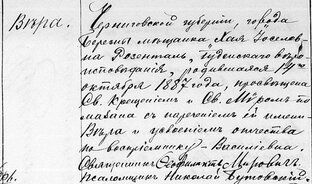 Вѣра.
Черниговской губерніи, города
Березны мѣщанка Хая Іоселев-
на Розенталь, іудейскаго вѣро-
исповѣданія, родившаяся 14го
октября 1887 года, просвѣщена
Св. Крещеніемъ и Св. Мѵромъ по-
мазана съ нареченіемъ ей имени
Вѣра и усвоеніемъ отчества
по воспріемнику – Васильевна.
Священникъ Мировичъ.
Псаломщикъ Николай